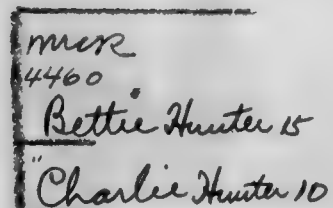 mrcr
4460
Bettie Hunter 15
"Charlie Hunter 10